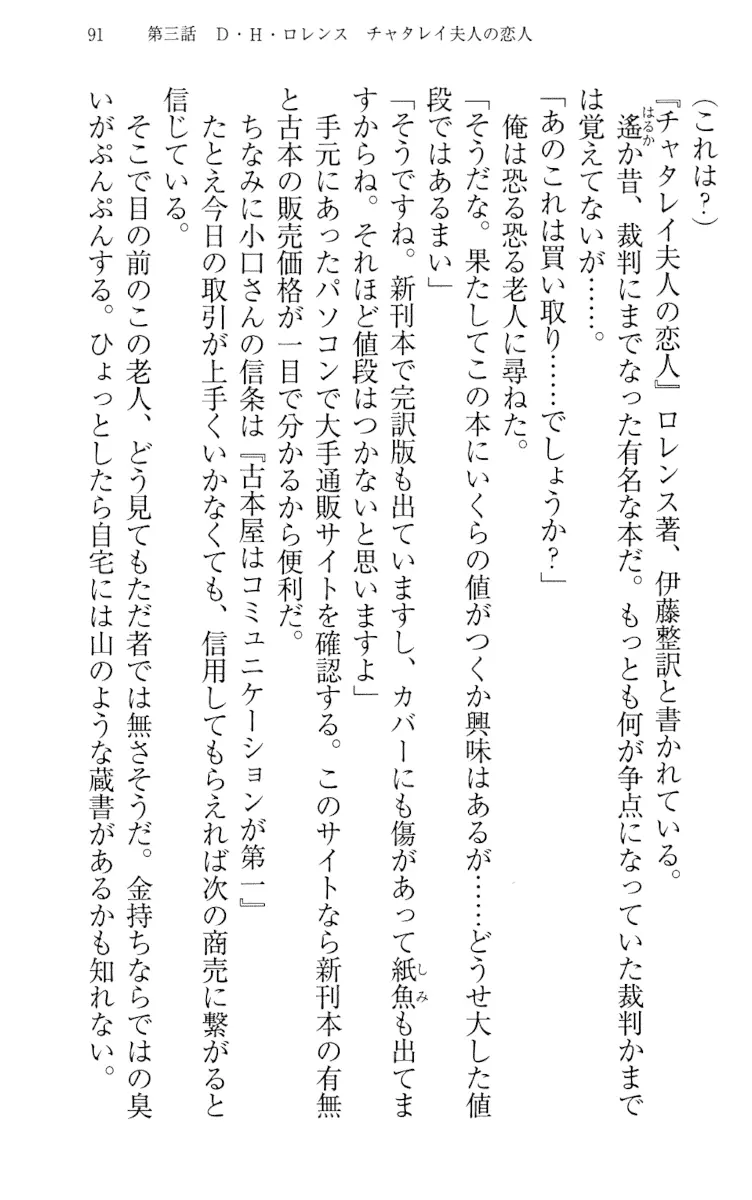 91 第三話 D・H・ロレンス チャタレイ夫人の恋人
(これは?)
『チャタレイ夫人の恋人』ロレンス著、伊藤整訳と書かれている。
遙か昔、裁判にまでなった有名な本だ。もっとも何が争点になっていた裁判かまで
は覚えてないが……。
「あのこれは買い取り……でしょうか?」
俺は恐る恐る老人に尋ねた。
「そうだな。果たしてこの本にいくらの値がつくか興味はあるが……どうせ大した値
段ではあるまい」
「そうですね。新刊本で完訳版も出ていますし、カバーにも傷があって紙魚も出てま
すからね。それほど値段はつかないと思いますよ」
手元にあったパソコンで大手通販サイトを確認する。このサイトなら新刊本の有無
と古本の販売価格が一目で分かるから便利だ。
ちなみに小口さんの信条は『古本屋はコミュニケーションが第一』
たとえ今日の取引が上手くいかなくても、信用してもらえれば次の商売に繋がると
信じている。
そこで目の前のこの老人、どう見てもただ者では無さそうだ。金持ちならではの臭
いがぷんぷんする。ひょっとしたら自宅には山のような蔵書があるかも知れない。